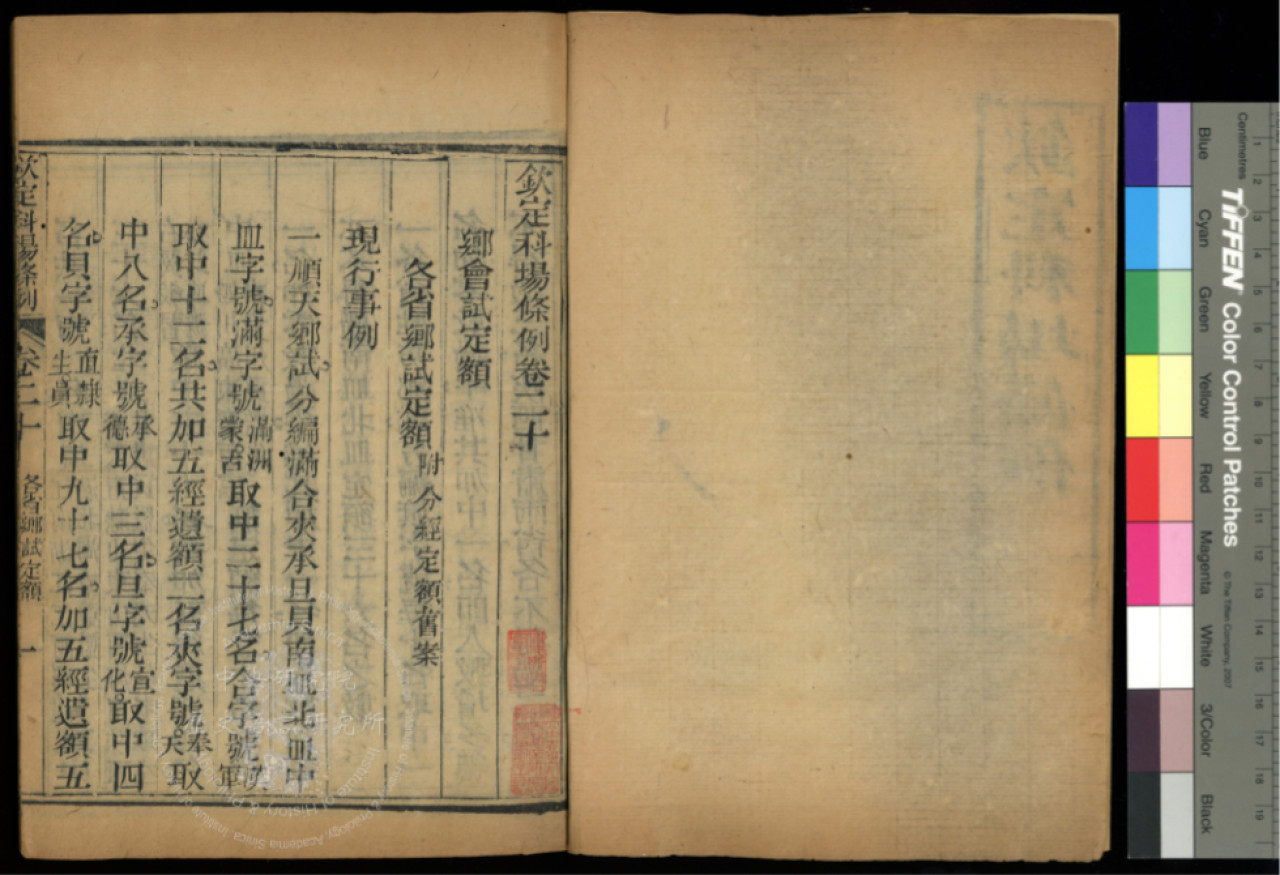 欽定科場條例卷二十
鄉會試定額
各省鄉試定額附分經定額舊案
現行事例
一順天鄉試分編滿合夾承旦貝南皿北皿中
皿字號滿字號滿洲蒙古取中二十七名合字號漢軍
取中十二名共加五經遺額二名夾字號奉天取
中八名承字號承德取中三名旦字號宣化取中四
名貝字號直隸生員取中九十七名加五經遺額五
欽定科場條例
卷二十
各省鄉試定額
一
Centimetres
1 2 3 4 5 6 7 8 9 10 11 12 13 14 15 16 17 18 19
TIFFEN Color Control Patches
© The Tiffen Company, 2007
Blue Cyan Green Yellow Red Magenta White 3/Color Black